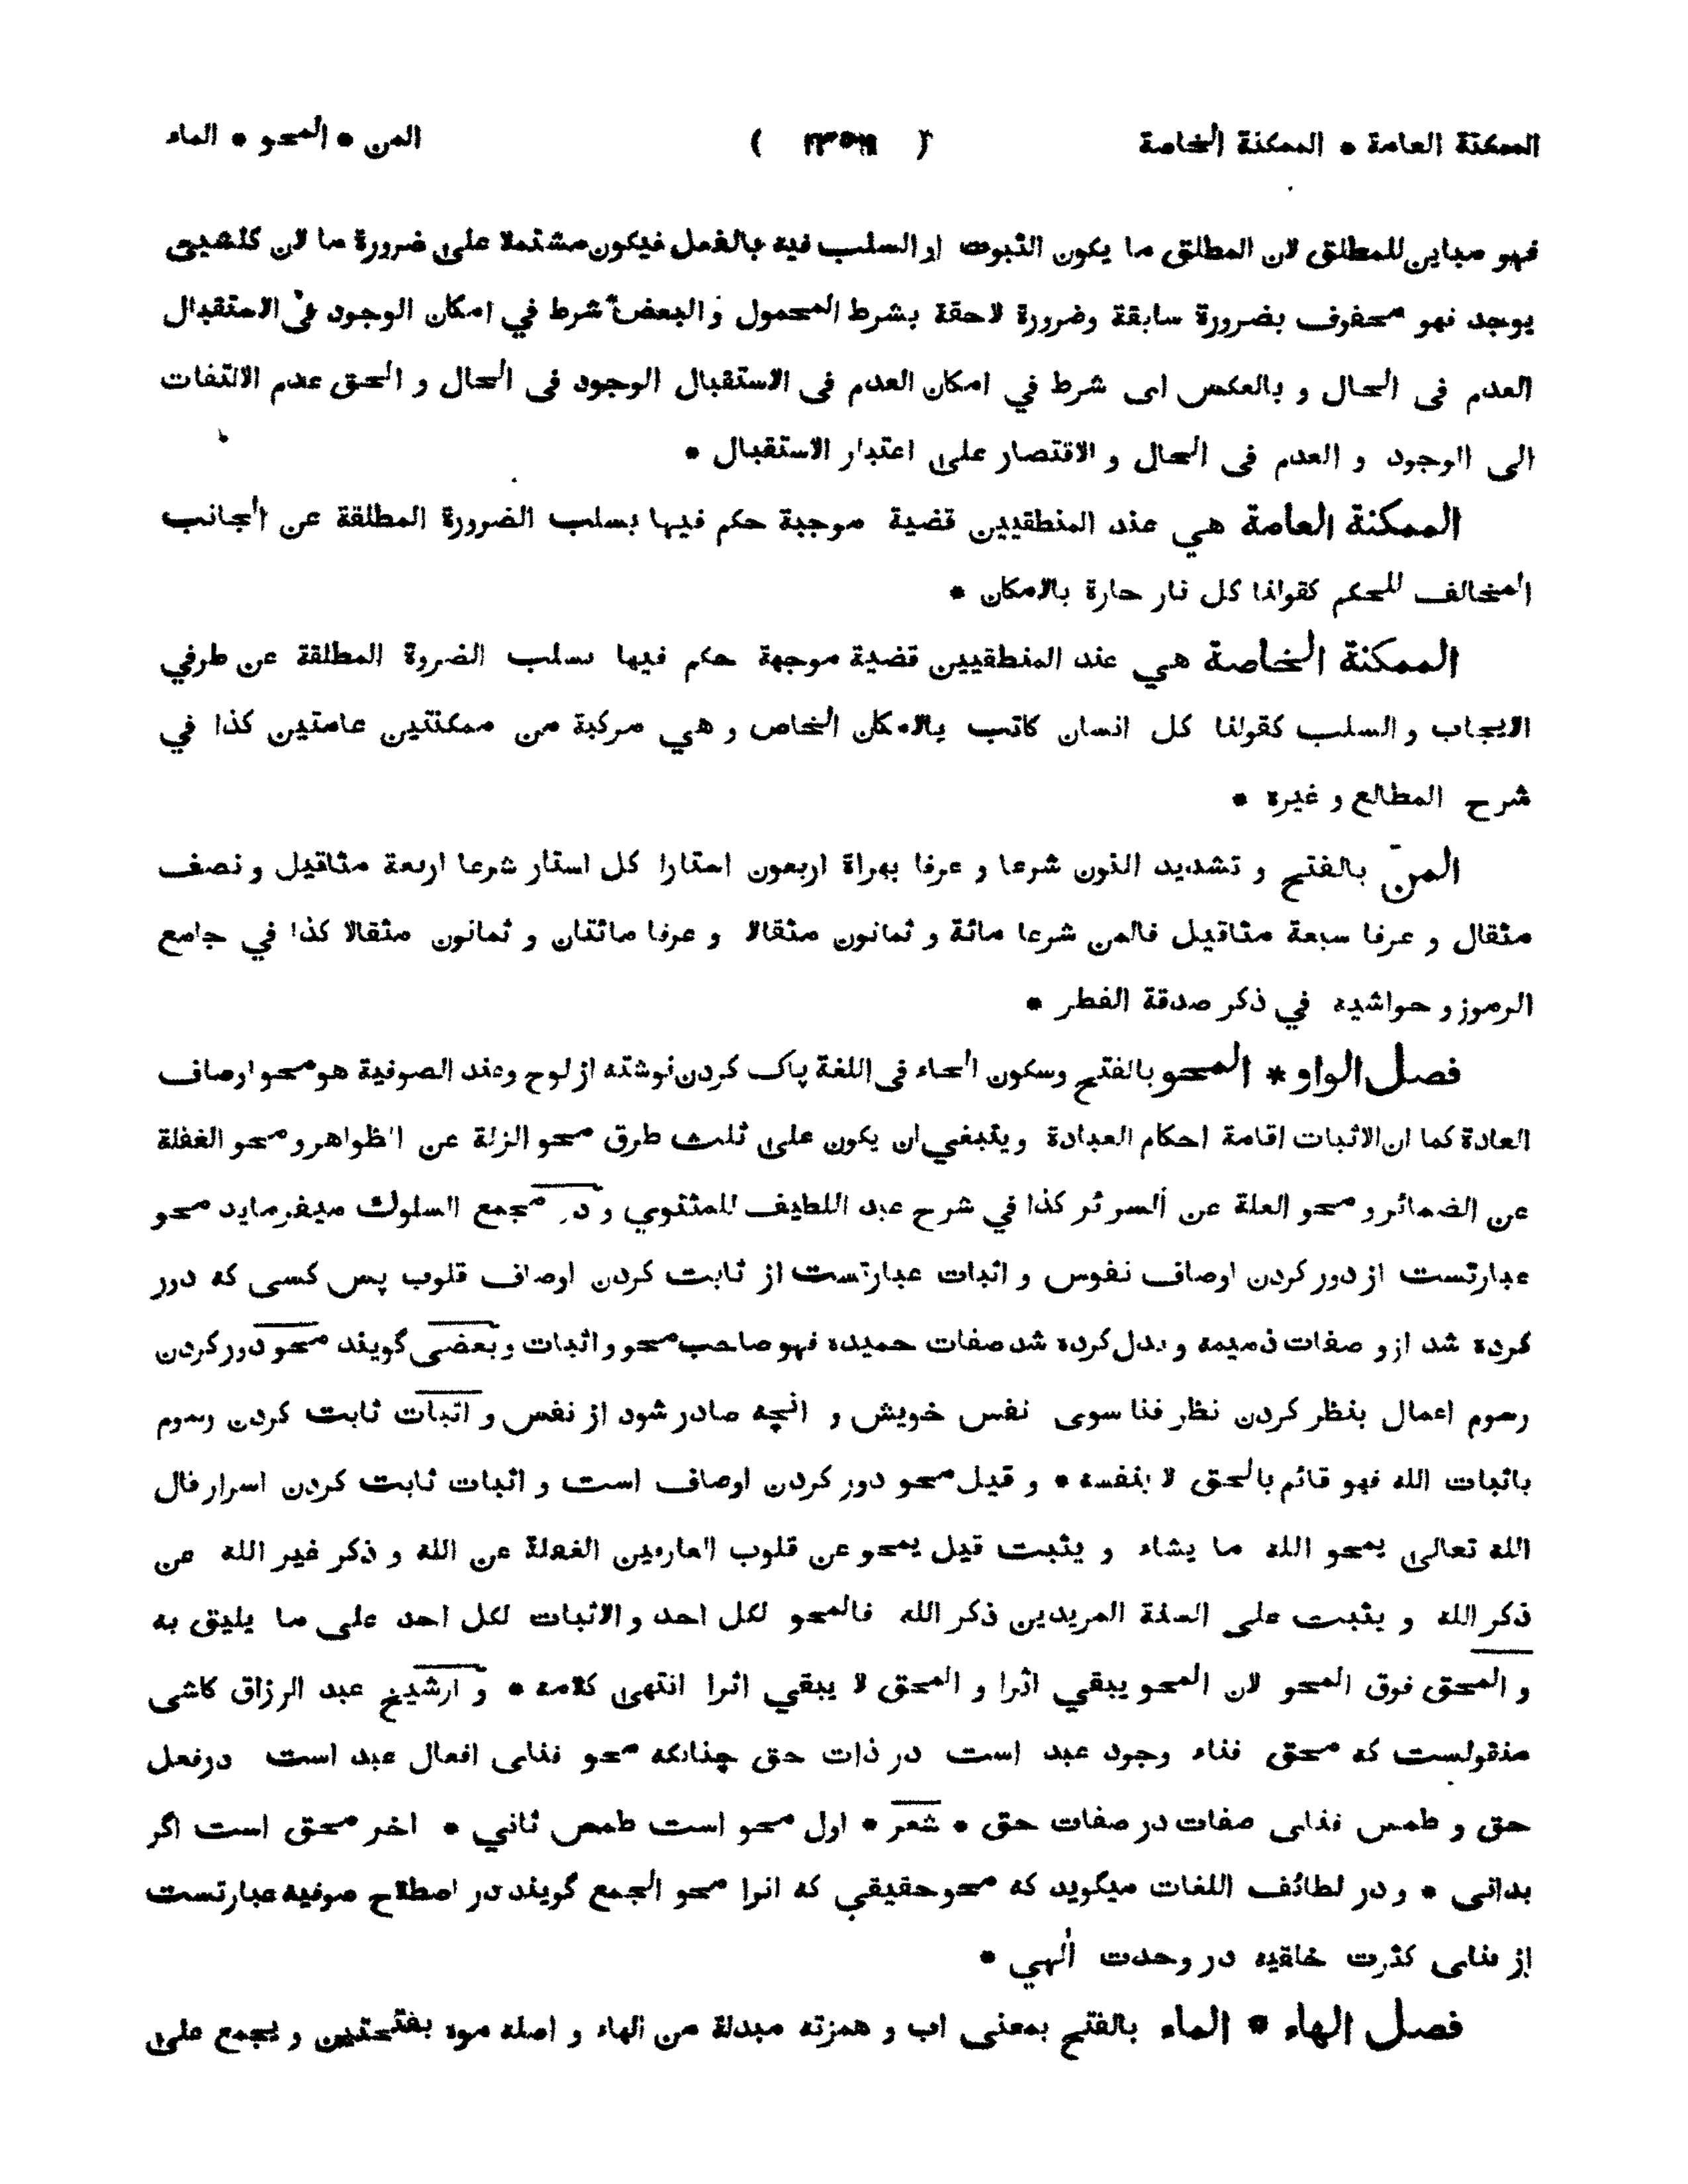 الممكنة العامة * الممكنة الخاصة ( ١٣٥٦ ) المن * المحو * الماء
فهو مباين للمطلق لان المطلق ما يكون الثبوت او السلب فيه بالفعل فيكون مشتملا على ضرورة ما لان كلشيى
يوجد نهو محفوف بضرورة سابقة وضرورة لاحقة بشرط المحمول و البعض شرط في امكان الوجود فى الاستقبال
العدم فى الحال و بالعكس اى شرط في امكان العدم فى الاستقبال الوجود فى الحال و الحق عدم الالتفات
الى الوجود و العدم فى الحال و الاقتصار على اعتبار الاستقبال *
الممكنة العامة هي عند المنطقيين قضية موجبة حكم فيها بسلب الضرورة المطلقة عن الجانب
المخالف للحكم كقولنا كل نار حارة بالامكان *
الممكنة الخاصة هي عند المنطقيين قضية موجهة حكم فيها بسلب الضروة المطلقة عن طرفي
الايجاب و السلب كقولنا كل انسان كاتب بالامكان الخاص و هي مركبة من ممكنتين عامتين كذا في
شرح المطالع و غيره *
المنّ بالفتح و تشديد النون شرعا و عرفا بهراة اربعون استارا كل استار شرعا اربعة مثاقيل و نصف
مثقال و عرفا سبعة مثاقيل فالمن شرعا مائة و ثمانون مثقالا و عرفا مائتان و ثمانون مثقالا كذا في جامع
الرموز و حواشيه في ذكر صدقة الفطر *
فصل الواو * المحو بالفتح وسكون الحاء فى اللغة پاک کردن نوشته از لوح وعند الصوفية هو محو اوصاف
العادة كما ان الاثبات اقامة احكام العبادة وينبغي ان يكون على ثلث طرق محو الزلة عن الظواهر و محو الغفلة
عن الضمائر و محو العلة عن السرائر كذا في شرح عبد اللطيف للمثنوي و در مجمع السلوك ميفرمايد محو
عبارتست از دور کردن اوصاف نفوس و اثبات عبارتست از ثابت کردن اوصاف قلوب پس کسی که دور
کرده شد ازو صفات ذمیمه و بدل کرده شد صفات حمیده فهو صاحب محو و اثبات و بعضی گویند محو دور کردن
رسوم اعمال بنظر کردن نظر فنا سوی نفس خویش و انچه صادر شود از نفس و اثبات ثابت کردن رسوم
باثبات الله فهو قائم بالحق لا بنفسه * و قيل محو دور کردن اوصاف است و اثبات ثابت کردن اسرار قال
الله تعالى يمحو الله ما يشاء و يثبت قيل يمحو عن قلوب العارفين الغفلة عن الله و ذكر غير الله عن
ذكر الله و يثبت على السنة المريدين ذكر الله فالمحو لكل احد و الاثبات لكل احد على ما يليق به
و المحق فوق المحو لان المحو يبقي اثرا و المحق لا يبقي اثرا انتهى كلامه * و ازشیخ عبد الرزاق کاشی
منقولست که محق فناء وجود عبد است در ذات حق چنانکه محو فنای افعال عبد است درفعل
حق و طمس فنای صفات در صفات حق * شعر * اول محو است طمس ثاني * اخر محق است اگر
بدانی * و در لطائف اللغات میگوید که محو حقیقي که انرا محو الجمع گویند در اصطلاح صوفیه عبارتست
از فنای کثرت خلقیه در وحدت الٰهي *
فصل الهاء * الماء بالفتح بمعنى اب و همزته مبدلة من الهاء و اصله موه بفتحتين و يجمع على